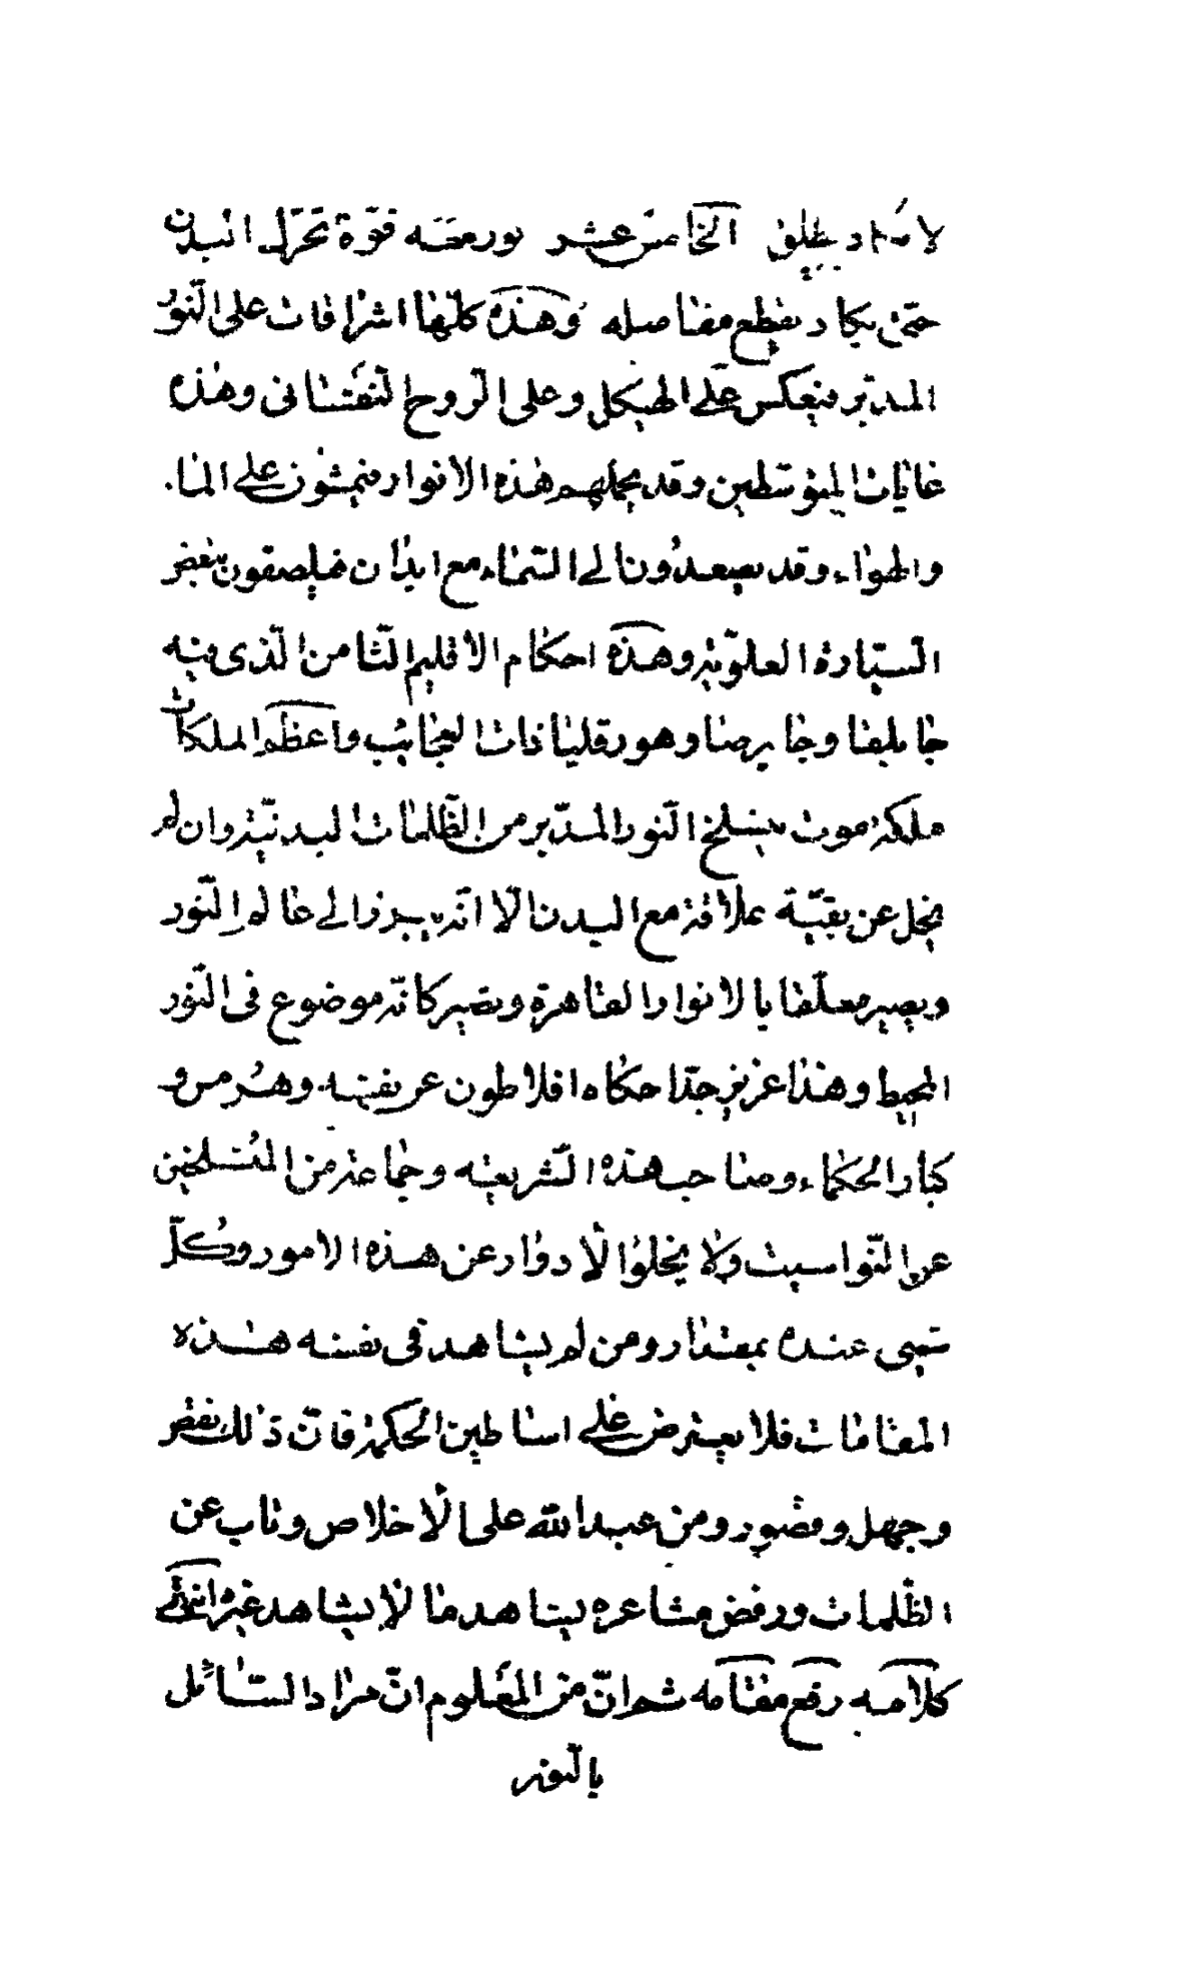 لا يكاد يطاق الخامس عشر نور معه قوة تحرك البدن
حتى يكاد يقطع مفاصله وهذه كلّها اشراقات على النّور
المدبّر فينعكس على الهيكل وعلى الرّوح النفسانى وهذه
غايات المتوسّطين وقد يحملهم هذه الانوار فيمشون على الماء
والهواء وقد يصعدون الى السّماء مع ابدان فيلصقون ببعض
السيّارة العلويّة وهذه احكام الاقليم الثّامن الّذى فيه
جابلقا وجابرصا وهورقليا ذات العجائب واعظم الملكات
ملكة موت ينسلخ النّور المدبّر من الظّلمات البدنيّة وان لم
يخل عن بقيّة علاقة مع البدن الّا انّه يبرز الى عالم النّور
ويصير معلّقا بالانوار القاهرة ويصير كانّه موضوع فى النّور
المحيط وهذا عزيز جدّا حكاه افلاطون عن نفسه وهرمس و
كبار الحكماء وصاحب هذه الشّريعة وجماعة من المنسلخين
عن النّواسيت ولا يخلوا الادوار عن هذه الامور وكلّ
شیء عنده بمقدار ومن لم يشاهد فى نفسه هذه
المقامات فلا يعترض على اساطين الحكمة فانّ ذلك نقص
وجهل وقصور ومن عبد الله على الاخلاص وتاب عن
الظّلمات ورفض مشاعره يشاهد ما لا يشاهد غيره انتهى
كلامه رفع مقامه ثم انّ من المعلوم انّ مراد السّائل
بالنّور